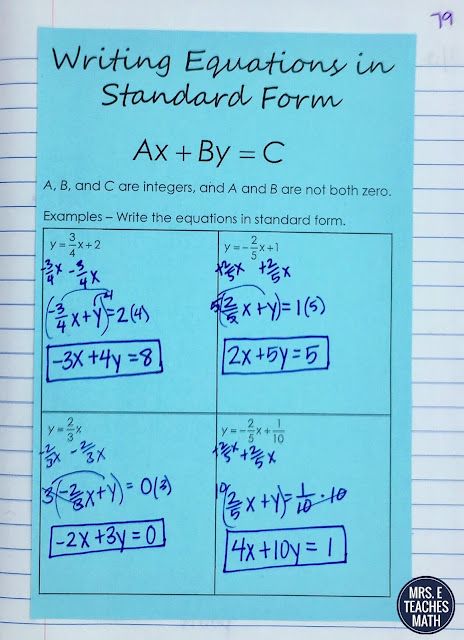 79
Writing Equations in
Standard Form
Ax + By = C
A, B, and C are integers, and A and B are not both zero.
Examples – Write the equations in standard form.
y = 3/4 x + 2
-3/4 x -3/4 x
(-3/4 x + y)4 = 2(4)
-3x + 4y = 8
y = -2/5 x + 1
+2/5 x +2/5 x
5(2/5 x + y) = 1(5)
2x + 5y = 5
y = 2/3 x
-2/3 x -2/3 x
3(-2/3 x + y) = 0(3)
-2x + 3y = 0
y = -2/5 x + 1/10
+2/5 x +2/5 x
10(2/5 x + y) = 1/10 · 10
4x + 10y = 1
MRS. E
TEACHES
MATH